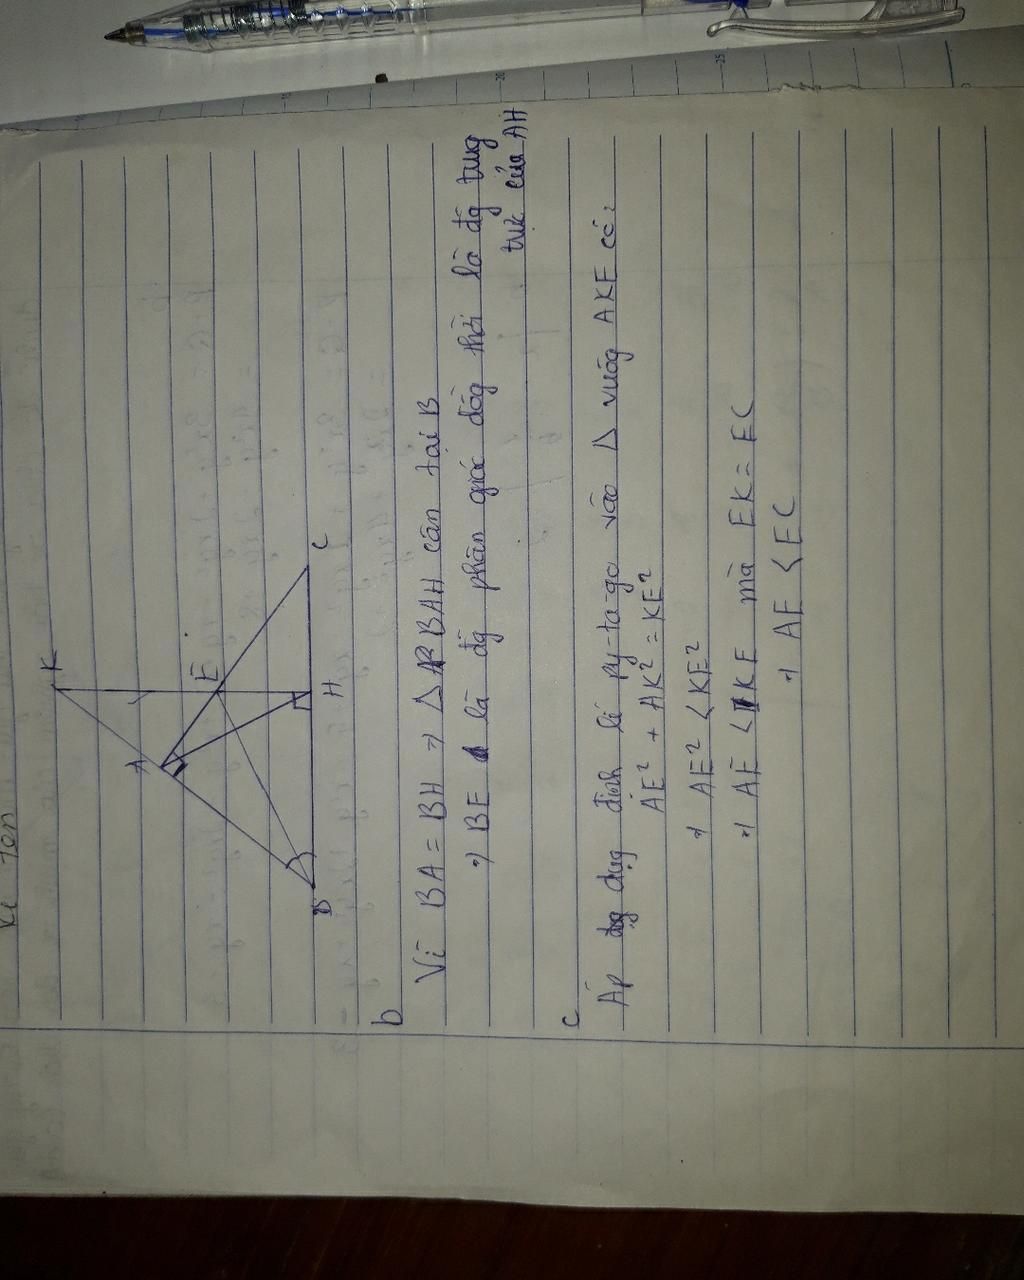 K
A
E
B
H
C
b
Vì BA = BH => Δ BAH cân tại B
=> BE là đg phân giác đồng thời là đg trug
trực của AH
c
Áp dụg định lí py-ta-go vào Δ vuôg AKE có:
AE² + AK² = KE²
=> AE² < KE²
=> AE < KE mà EK = EC
=> AE < EC
20
25